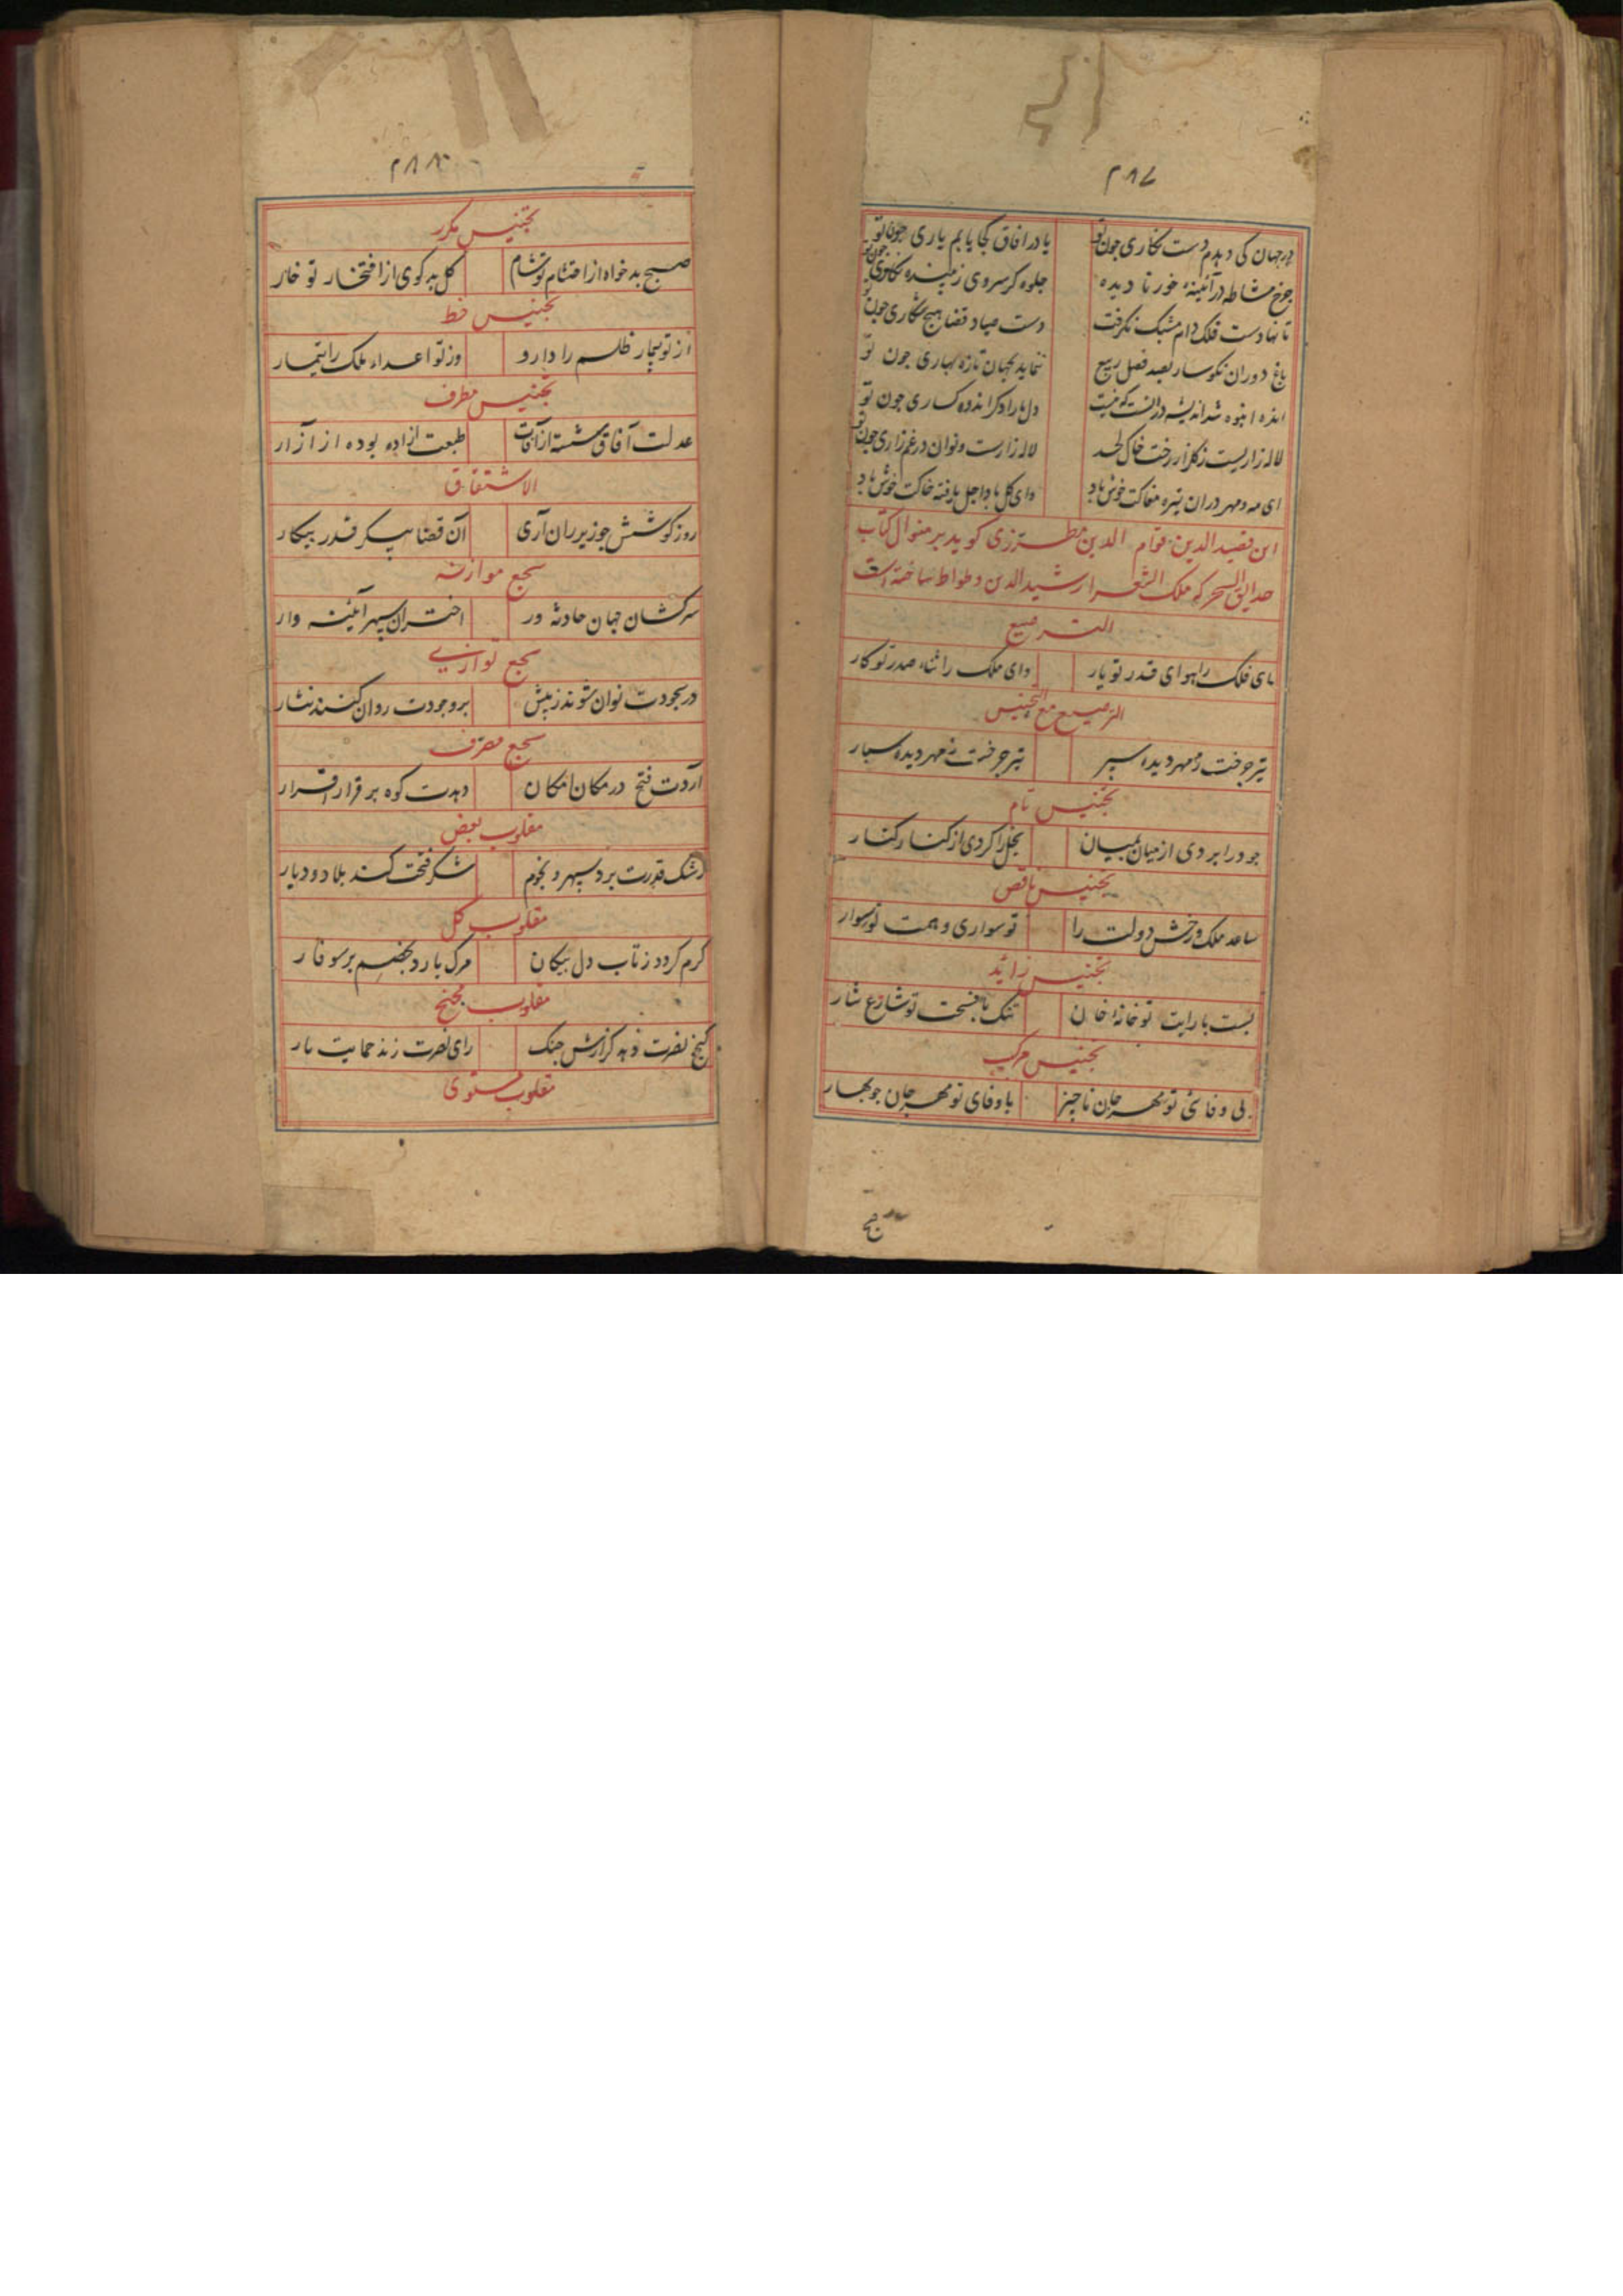 ۲۸۷
در جهان کی دهدم دست نکاری جون تو یا در افاق کجا یابم یاری جون تو
جرخ مشاطه در آئینهٔ خور نا دیده جلوه کر سروی زیبنده نکاری جون تو
تا نهادست فلک دام مشبک نکرفت دست صیاد قضا هیچ شکاری جون تو
باغ دوران نکوسار بصد فصل ربیع ننماید بجهان تازه بهاری جون تو
انده انبوه شد اندیشه در انست که نیست دل ما را دکر انده کساری جون تو
لاله زاریست ز کلزار رخت خاک لحد لاله زارست و نوان در غم زاری جون تو
ای مه و مهر در ان تیره مغاکت خوش باد وای کل با د اجل یافته خاکت خوش باد
این قصید الدین قوام الدین مطرزی کوید بر منوال کتاب
حدایق السحر که ملک الشعرا رشید الدین وطواط ساخته است
الترصیع
ای فلک را هوای قدر تو بار وای ملک را ثناء صدر تو کار
الترصیع مع التجنیس
تیر جرخت ز مهر دیده سپر تیر جرخت ز مهر دیده سبار
تجنیس تام
جود را بردی از میان بمیان بخل را کردی از کنار کنار
تجنیس ناقص
ساعد ملک و رخش دولت را تو سواری و همت تو سوار
تجنیس زائد
بست با رایت تو خانهٔ خان تنک با فسحت تو شارع شار
تجنیس مرکب
بی وفائی تو مهر جان ناجیز با وفای تو مهرجان جو بهار
۲۸۸
تجنیس مکرر
صبح بدخواه از احتشام تو شام کل بدکوی از افتخار تو خار
تجنیس خط
از تو بیمار ظلم را دارو وز تو اعداء ملک را تیمار
تجنیس مطرف
عدلت آفاق شسته از آفات طبعت ازاده بوده از آزار
الاشتقاق
روز کوشش جو زیر ران آری آن قضا پیکر قدر بیکار
سجع موازنه
سرکشان جهان حادثه ور اختران سپهر آئینه وار
سجع توازی
در سجودت نوان شوند ز پیش بر وجودت روان کنند نثار
سجع مطرف
آردت فتح در مکان امکان دهدت کوه بر قرار اقرار
مقلوب بعض
رشک قدرت برد سپهر و نجوم شکر فتحت کند بلاد و دیار
مقلوب کل
کرم کردد ز تاب دل پیکان مرک بارد بخصم بر سوفار
مقلوب مجنح
کنج نصرت دهد کزارش جنک رای نصرت زند حمایت یار
مقلوب مستوی